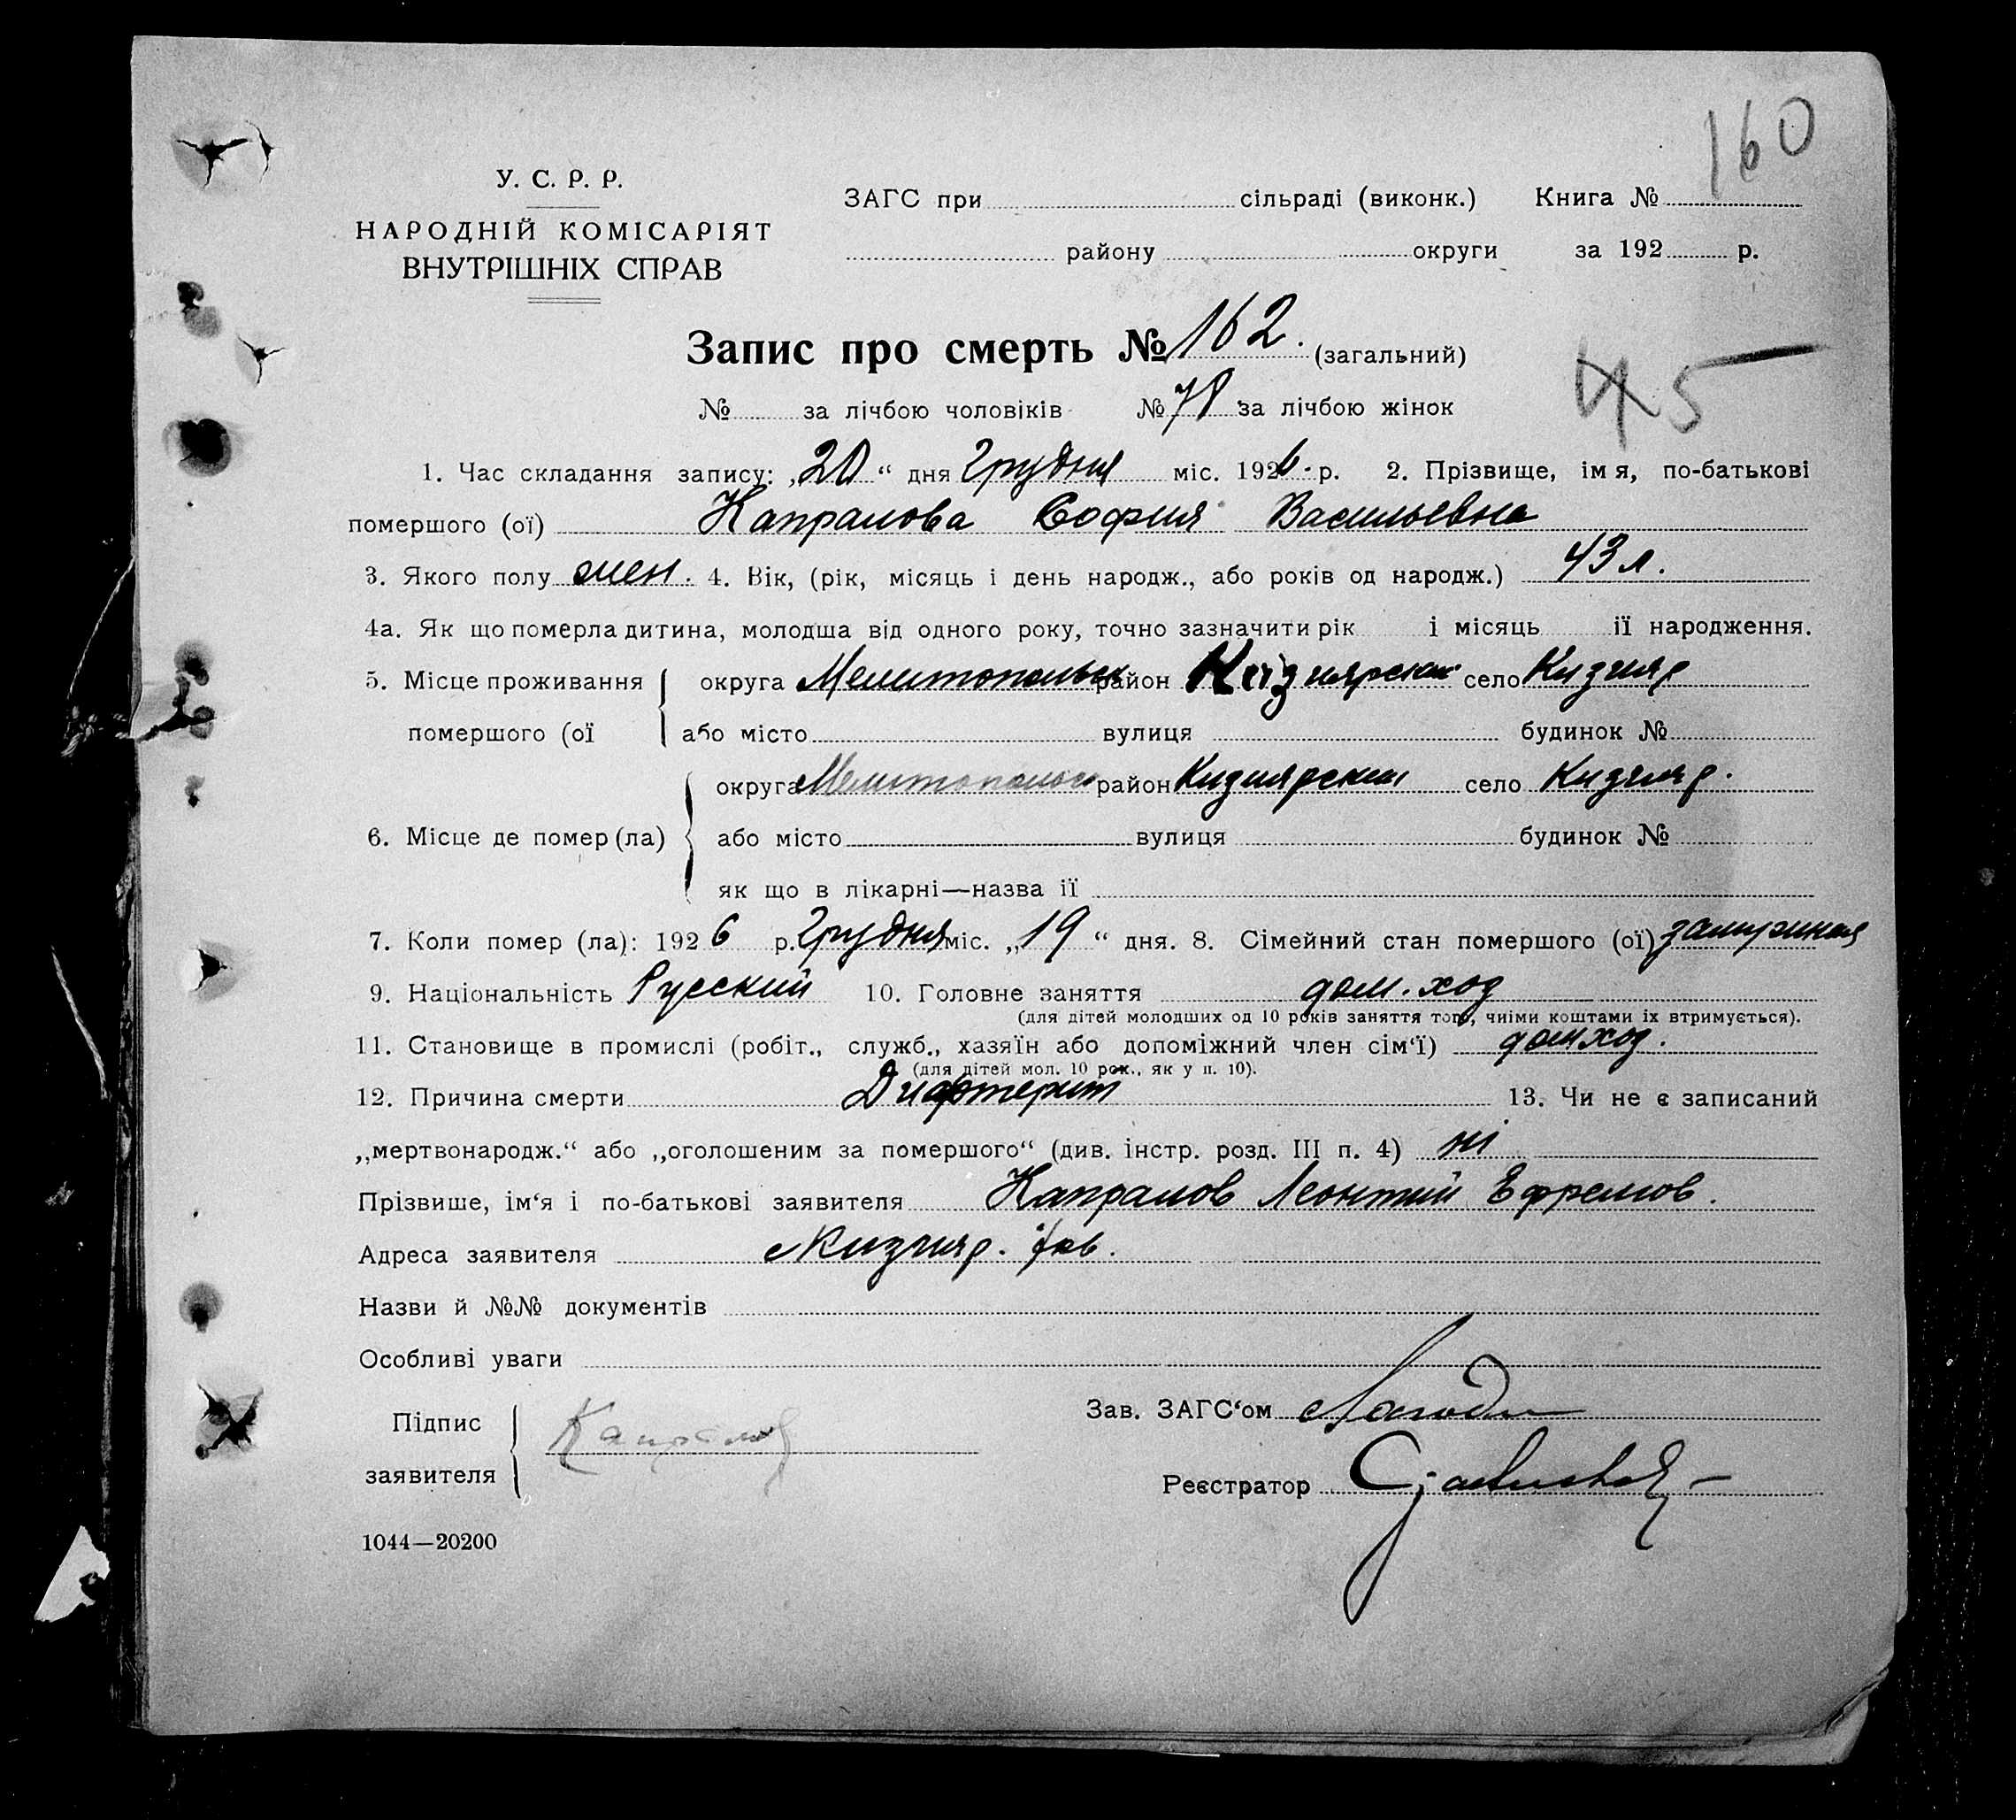 160
У. С. Р. Р.
НАРОДНІЙ КОМІСАРІЯТ
ВНУТРІШНІХ СПРАВ
ЗАГС при сільраді (виконк.) Книга №
району округи за 192 р.
Запис про смерть № 162. (загальний)
45
№ за лічбою чоловіків № 78 за лічбою жінок
1. Час складання запису: „20“ дня Грудня міс. 1926. р. 2. Прізвище, імя, по-батькові
помершого (ої) Капралова София Васильевна
3. Якого полу жен. 4. Вік, (рік, місяць і день народж., або років од народж.) 43 л.
4а. Як що померла дитина, молодша від одного року, точно зазначити рік і місяць її народження.
5. Місце проживання помершого (ої
округа Мелитопольск район Кизиярский село Кизияр
або місто вулиця будинок №
6. Місце де помер (ла)
округа Мелитопольск район Кизиярский село Кизияр.
або місто вулиця будинок №
як що в лікарні—назва її
7. Коли помер (ла): 1926 р. Грудня міс. „19“ дня. 8. Сімейний стан помершого (ої) замужняя
9. Національність Русский 10. Головне заняття дом. ход
(для дітей молодших од 10 років заняття того, чиіми коштами їх втримується).
11. Становище в промислі (робіт., служб., хазяїн або допоміжний член сім‘ї) домход.
(для дітей мол. 10 рок., як у п. 10).
12. Причина смерти Дифтерит 13. Чи не є записаний
„мертвонародж.“ або „оголошеним за помершого“ (див. інстр. розд. III п. 4) ні
Прізвише, ім‘я і по-батькові заявителя Капралов Леонтий Ефремов.
Адреса заявителя Кизияр.
Назви й №№ документів
Особливі уваги
Підпис
заявителя
Капралов
Зав. ЗАГС‘ом
Реєстратор
1044—20200